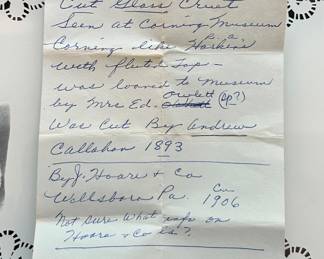 Cut Glass Cruet
Seen at Corning Museum
Corning like Hoskins
with fluted Top —
was loaned to Museum
Owlett
by Mrs Ed. (sp?)
Was Cut By Andrew
Callahan 1893
By J. Hoare & Co
Wellsboro Pa. Cir
1906
Not Sure What info on
Hoare & Co is?